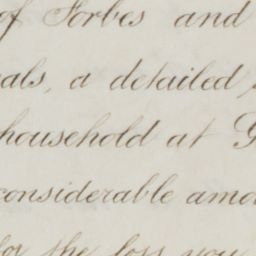 of Forbes and
als, a detailed
household at
considerable amo
for the loss you